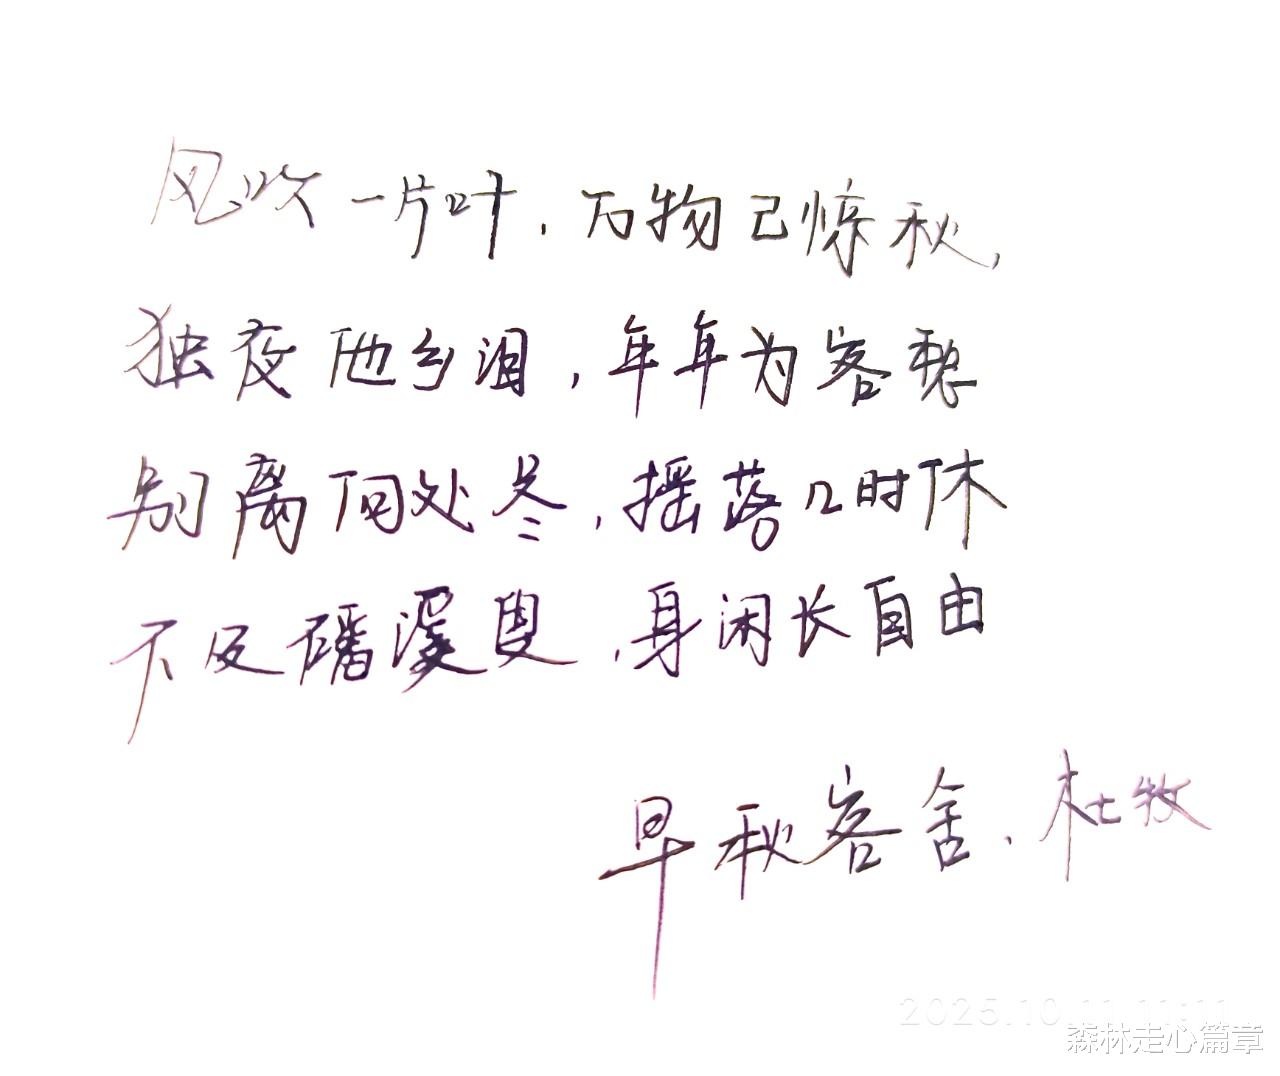 风吹一片叶，万物已惊秋，
独夜他乡泪，年年为客愁
别离何处尽，摇落几时休
不及磻溪叟，身闲长自由
早秋客舍．杜牧
2025.10.11 11:11
森林走心篇章